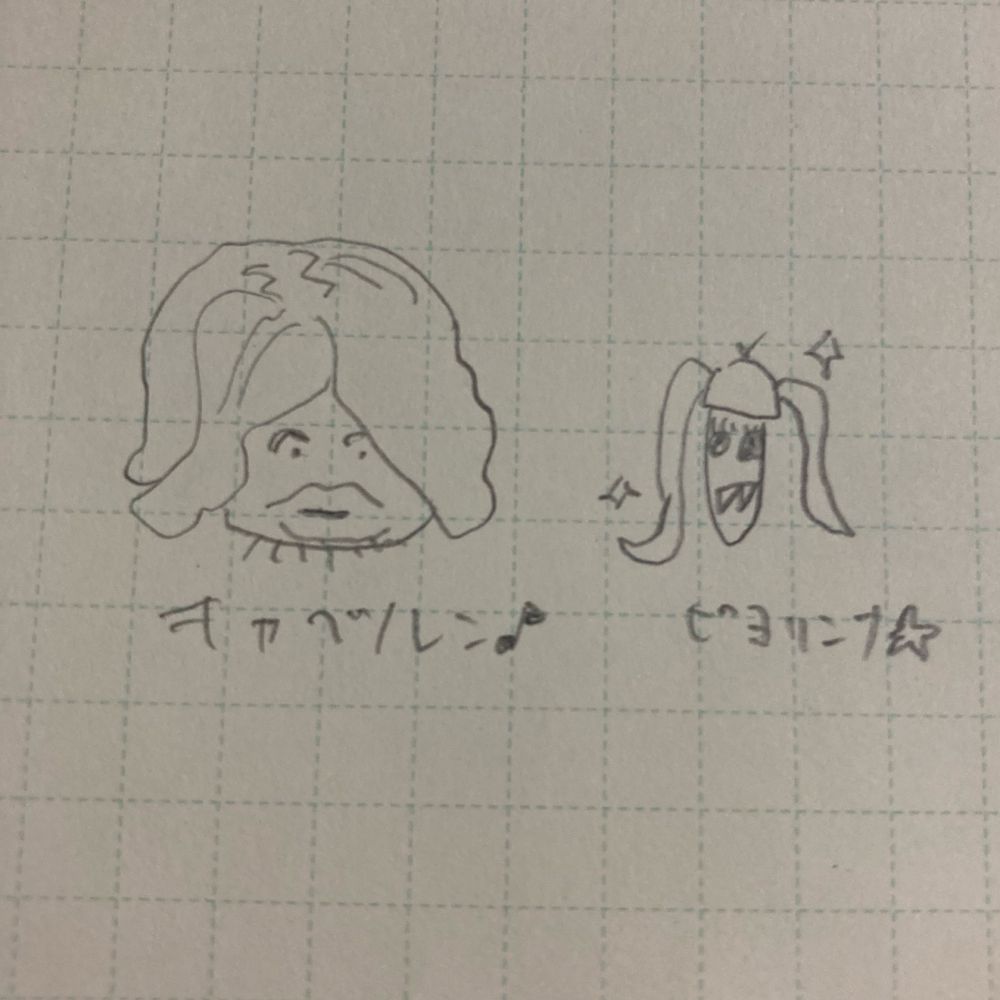 キャベツレン♪ ピヨリンナ☆